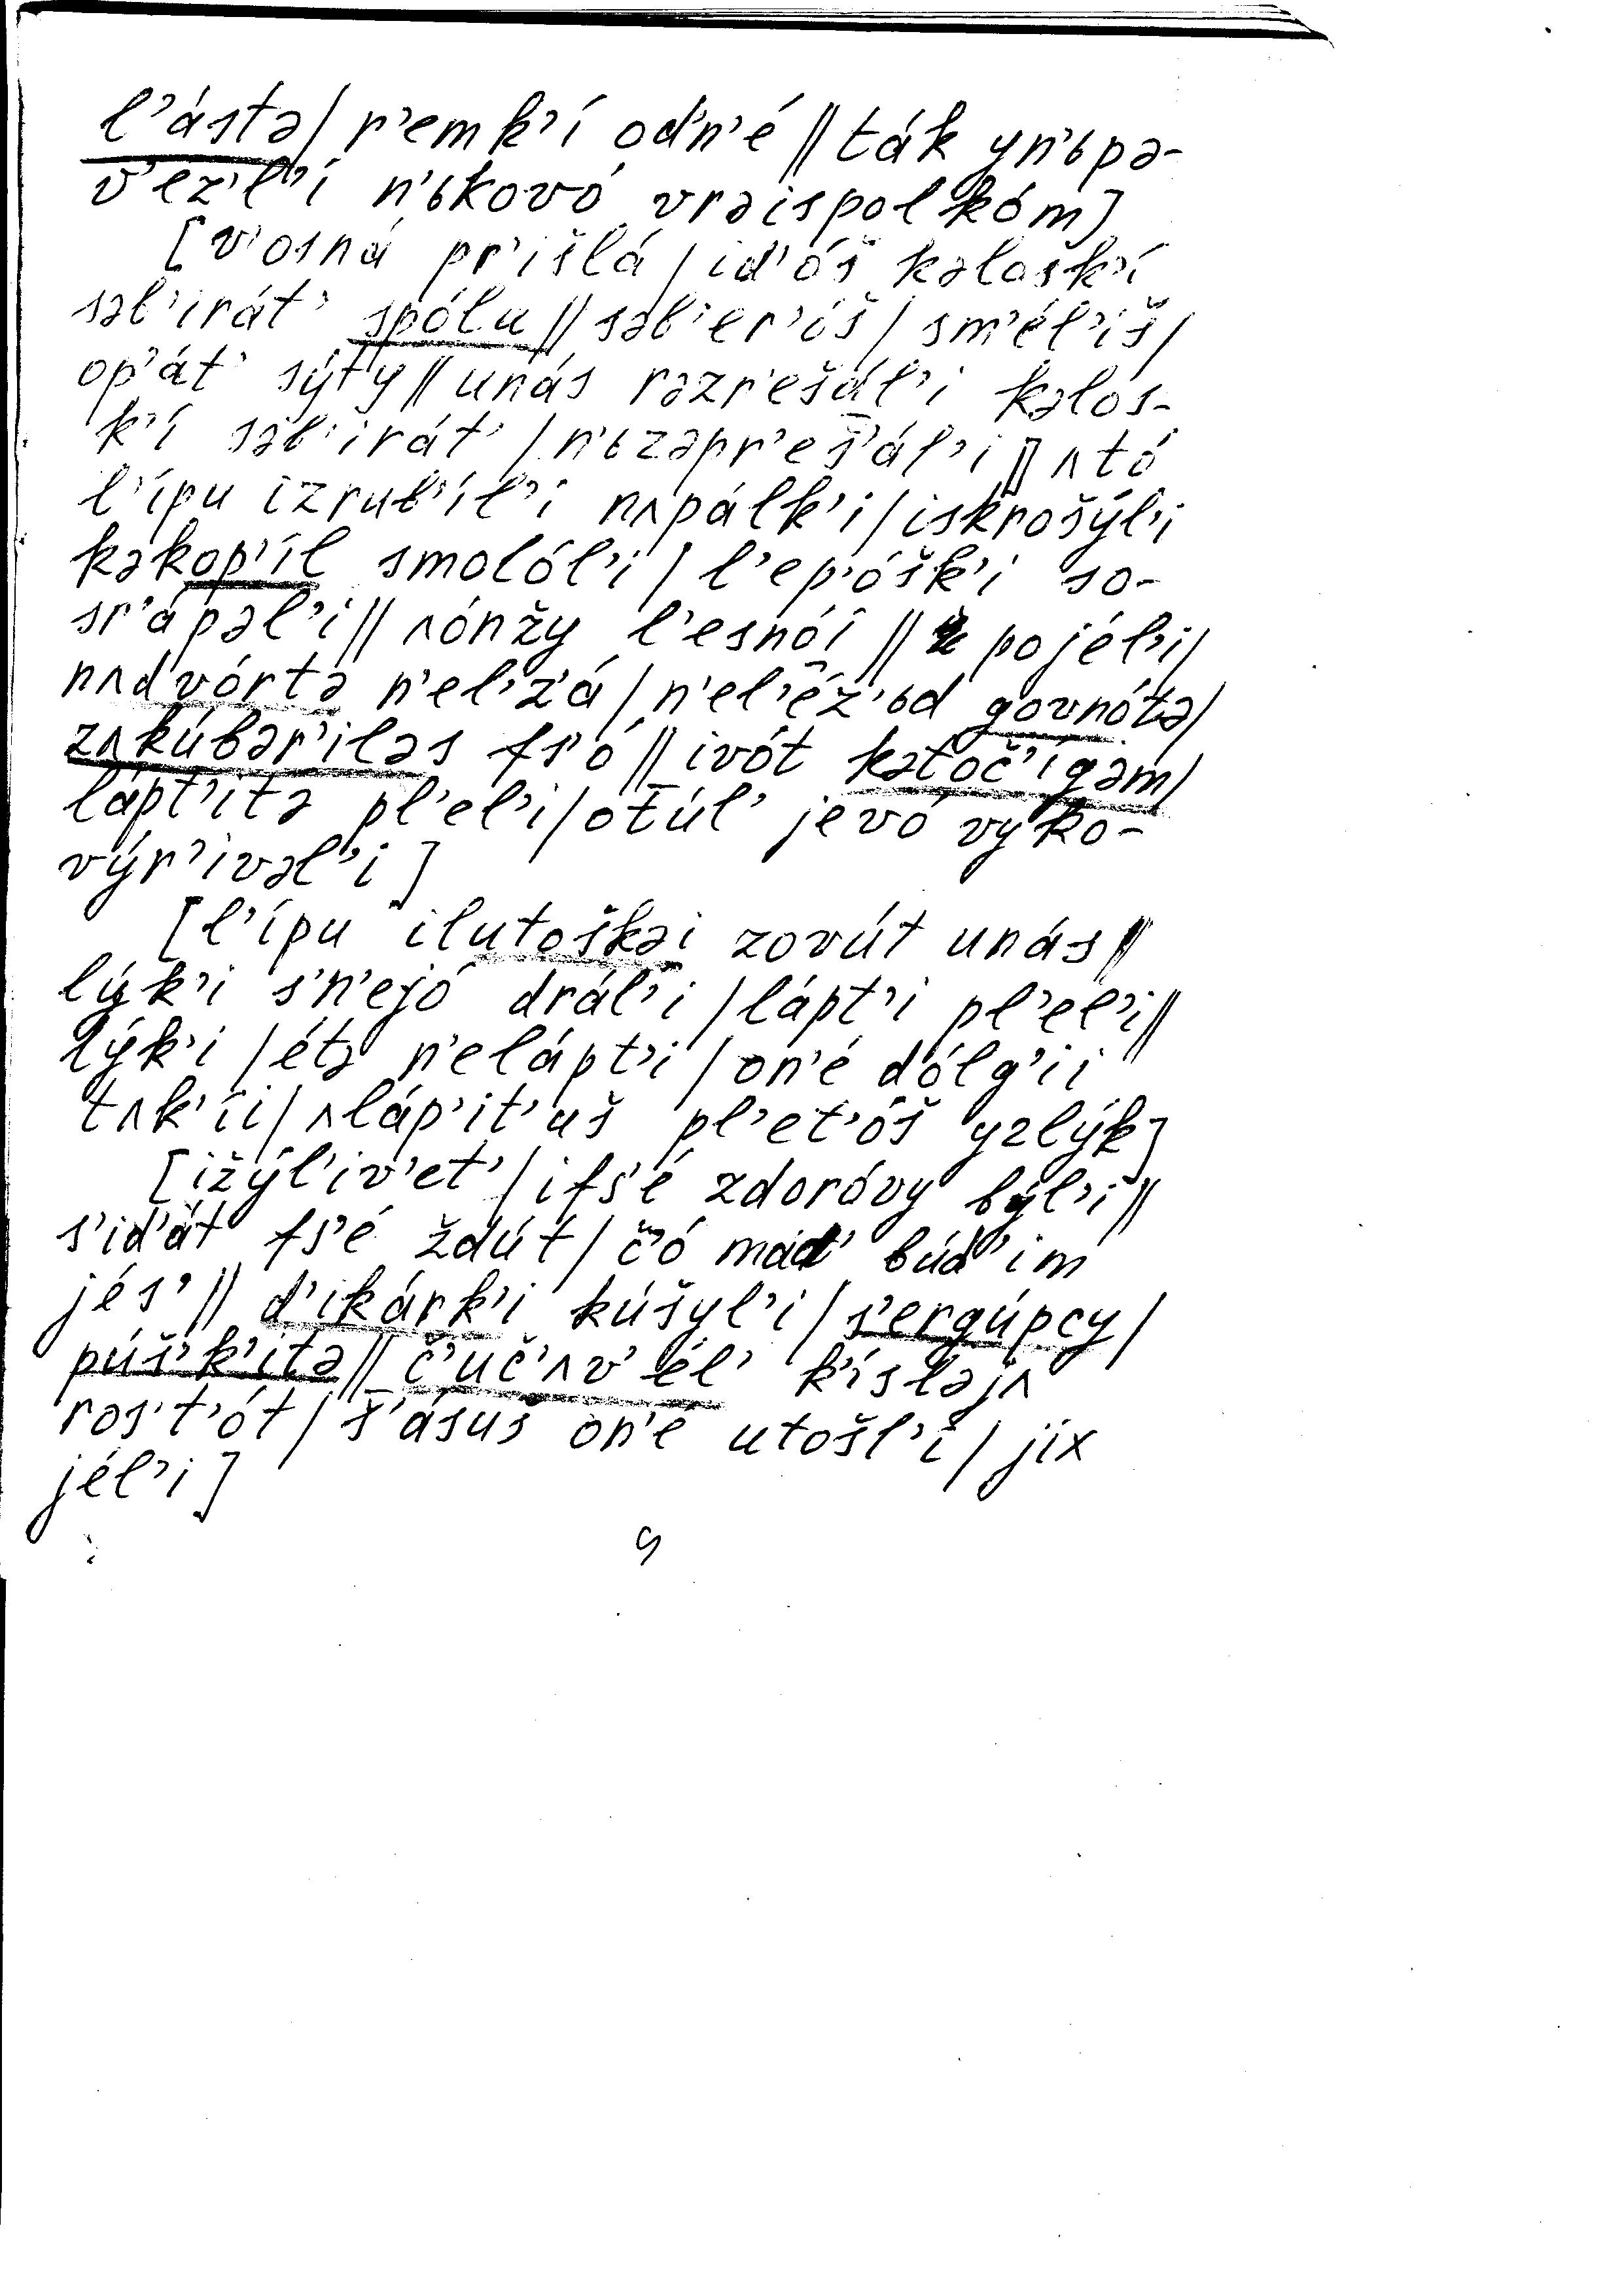 l’ástə/ r’emk’í od’n’é // ták yn’ьpə-
v’éz’l’i n’ьkovó vrəispolkóm]
[v’osná pr’išlá / id’óš kəlošk’í
səb’irát’ spólu // səb’er’óš / sm’él’iš /
op’át’ sýty // unás rəzr’ešál’i kəlos-
k’í səb’irát’ / n’ьzəpr’eš’ál’i // ʌtó
l’ípu izrub’íl’i nʌpálk’i / iskrošýl’i
kəkop’íl smolól’i / l’ep’óšk’i so-
sr’ápəl’i // ʌónžy l’esnói // pojél’i /
nʌdvórtə n’el’z’á / n’el’éz’ьd govnótə /
zʌkúbər’iləs fs’ó // ivót kətoč’ígəm /
lápt’itə pl’el’i / ott́úl’ jevó vyko-
výr’ivəl’i]
[l’ípu ilutoškəi zovút unás //
lýk’i s’n’ejó drál’i / lápt’i pl’el’i //
lýk’i / étə n’elápt’i / on’é dólg’ii
tʌk’íi / ʌláp’it’uš pl’et’óš yzlýk]
[ižýl’iv’et’ / ifs’é zdoróvy býl’i //
s’id’át fs’é ždút / č’ó mát’ búd’im
jés’ // d’ikárk’i kúšyl’i / s’ergúpcy /
púš’k’itə // č’uč’ʌv’él’ k’ísləjʌ
ros’t’ót / š’ásuš on’é utošl’i / jix
jél’i]
9